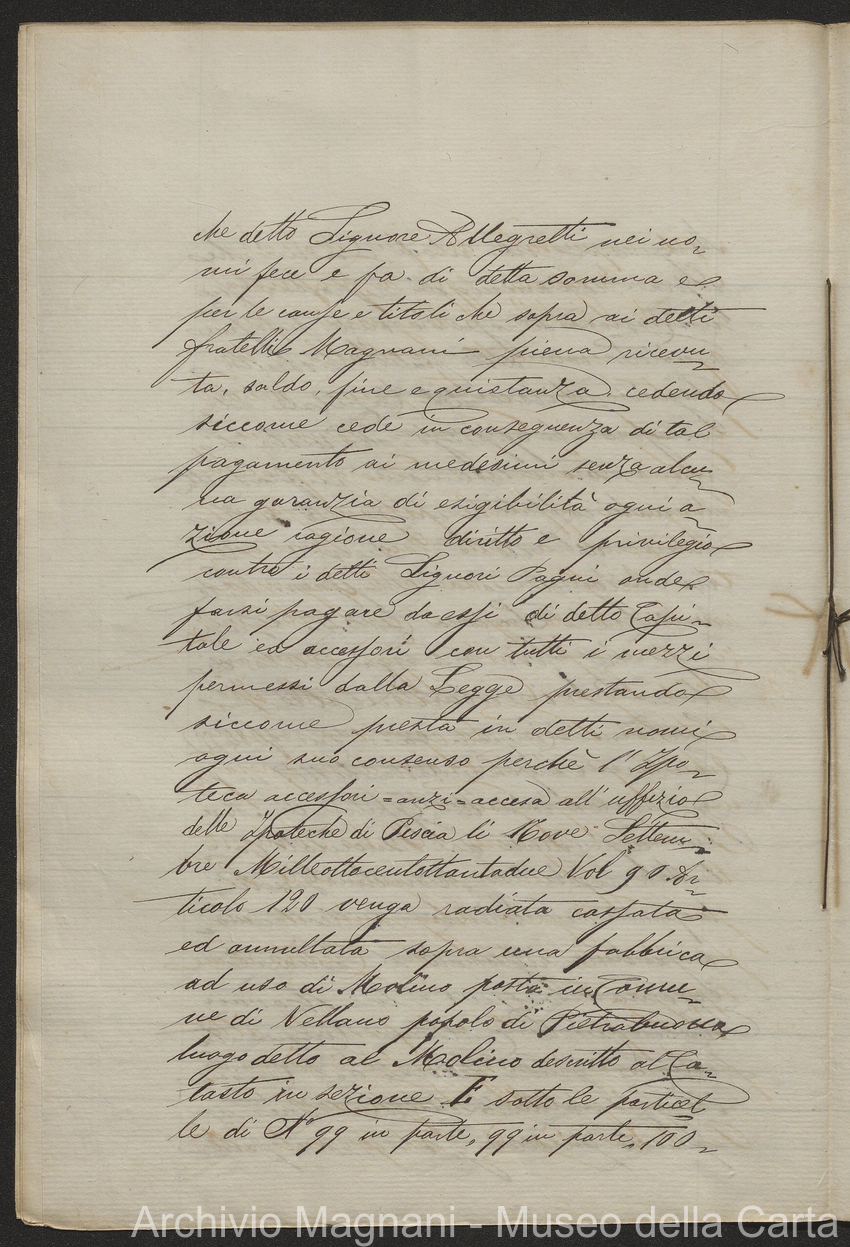 che detto Signore Allegretti nei no-
mi fece e fa di detta somma e
per le cause e titoli che sopra ai detti
fratelli Magnani piena ricevu-
ta, saldo, fine e quistanza cedendo
siccome cede in conseguenza di tal
pagamento ai medesimi senza alcu-
na garanzia di esigibilità ogni a-
zione ragione diritto e privilegio
contro i detti Signori Pagni onde
farsi pagare da essi di detto Capi-
tale ed accessori con tutti i mezzi
permessi dalla Legge prestando
siccome presta in detti nomi
ogni suo consenso perchè l'Ipo-
teca accessori = anzi = accesa all'uffizio
delle Ipoteche di Pescia li Nove Settem-
bre Milleottocentottantadue Vol 90 Ar-
ticolo 120 venga radiata cassata
ed annullata sopra una fabbrica
ad uso di Molino posta in Comu-
ne di Vellano popolo di Pietrabuona
luogo detto al Molino descritto al Ca-
tasto in sezione E sotto le particel
le di N° 99 in parte, 99 in parte, 100-
Archivio Magnani - Museo della Carta